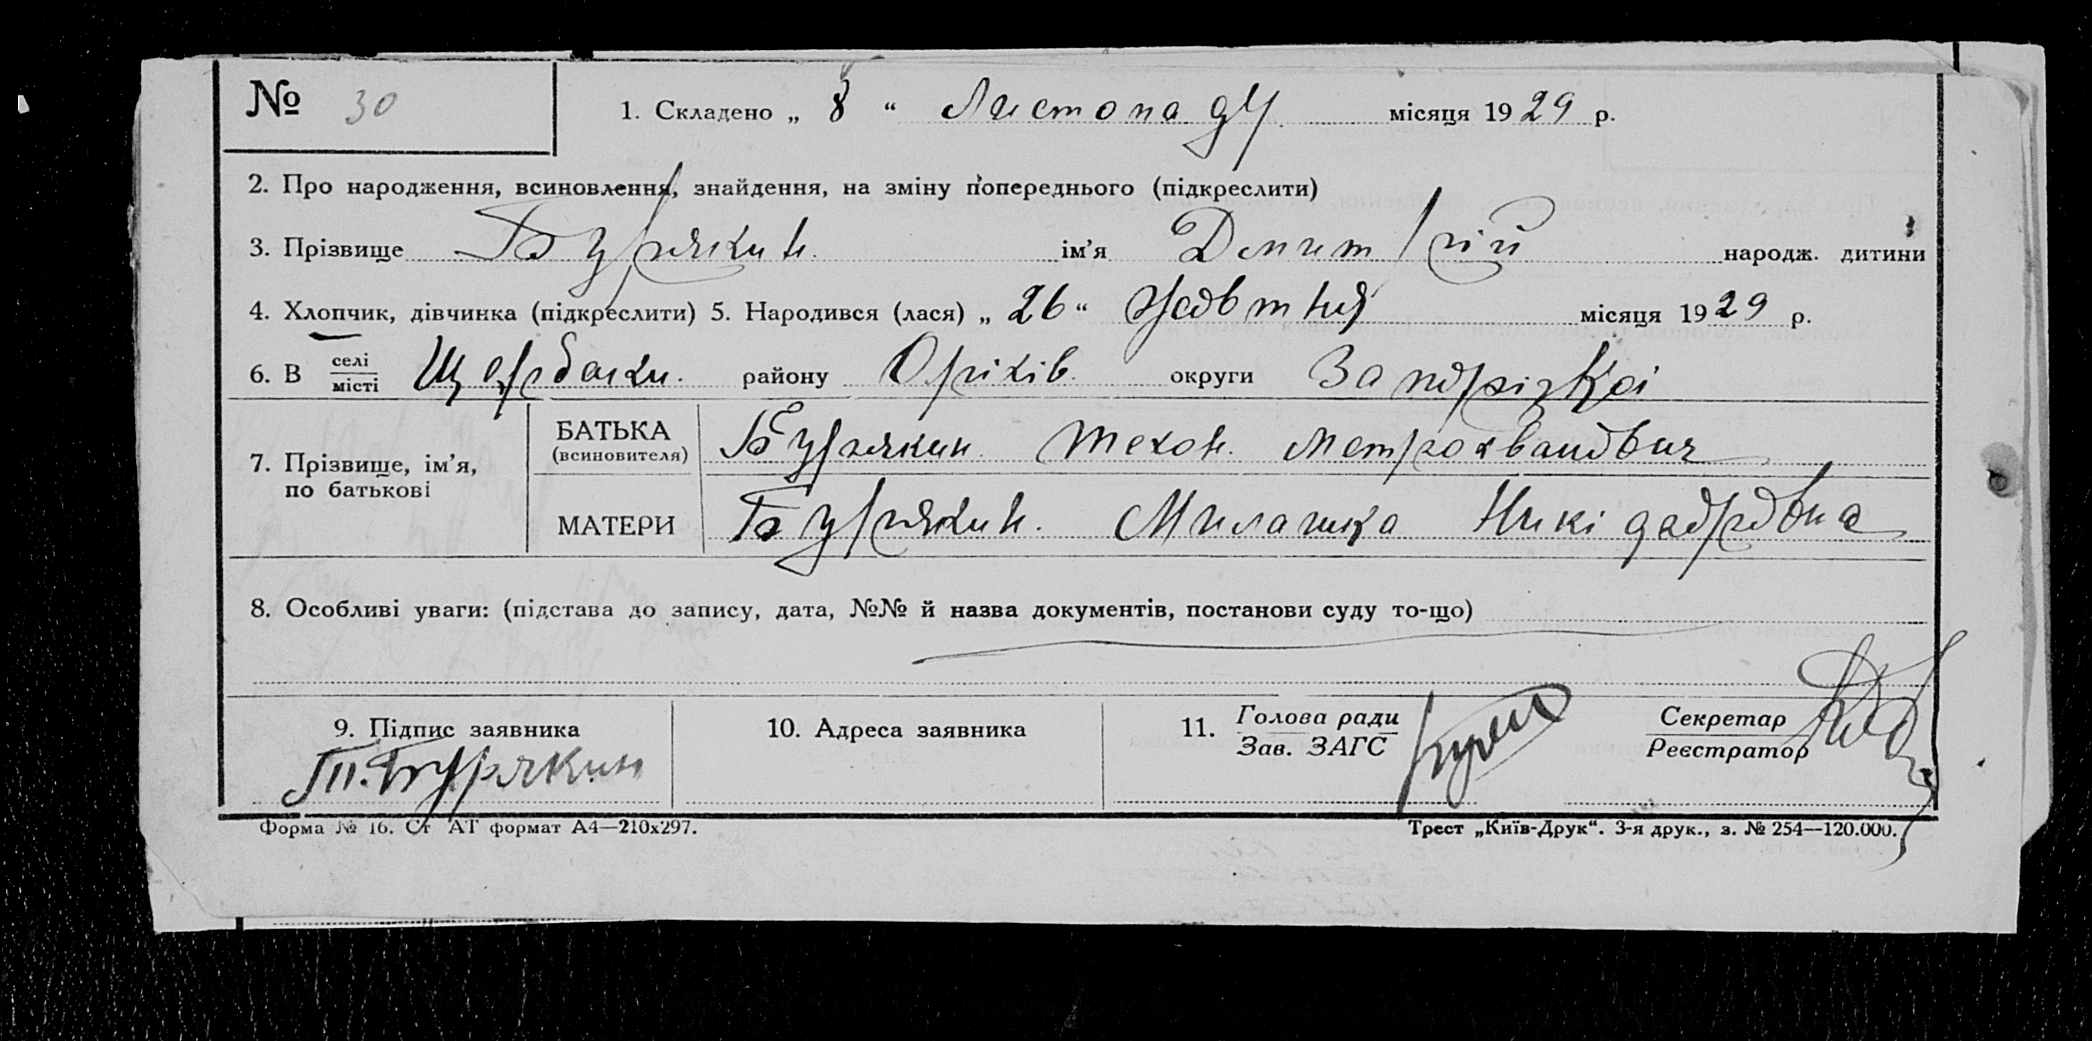 № 30 1. Складено „ 8 “ Листопаду місяця 1929 р.
2. Про народження, всиновлення, знайдення, на зміну попереднього (підкреслити)
3. Прізвище Бурякин ім’я Дмитрій народж. дитини
4. Хлопчик, дівчинка (підкреслити) 5. Народився (лася) „ 26 “ Жовтня місяця 1929 р.
6. В селі місті Щербаки району Оріхів округи Запорізкоі
7. Прізвище, ім’я, по батькові
БАТЬКА (всиновителя) Бурякин Техон Метрохванович
МАТЕРИ Бурякин Милашка Никіфоровна
8. Особливі уваги: (підстава до запису, дата, №№ й назва документів, постанови суду то-що)
9. Підпис заявника 10. Адреса заявника 11. Голова ради Зав. ЗАГС Секретар Реєстратор
Т. Бурякин
Форма № 16. Ст АТ формат А4—210х297. Трест „Київ-Друк“. 3-я друк., з. № 254—120.000.